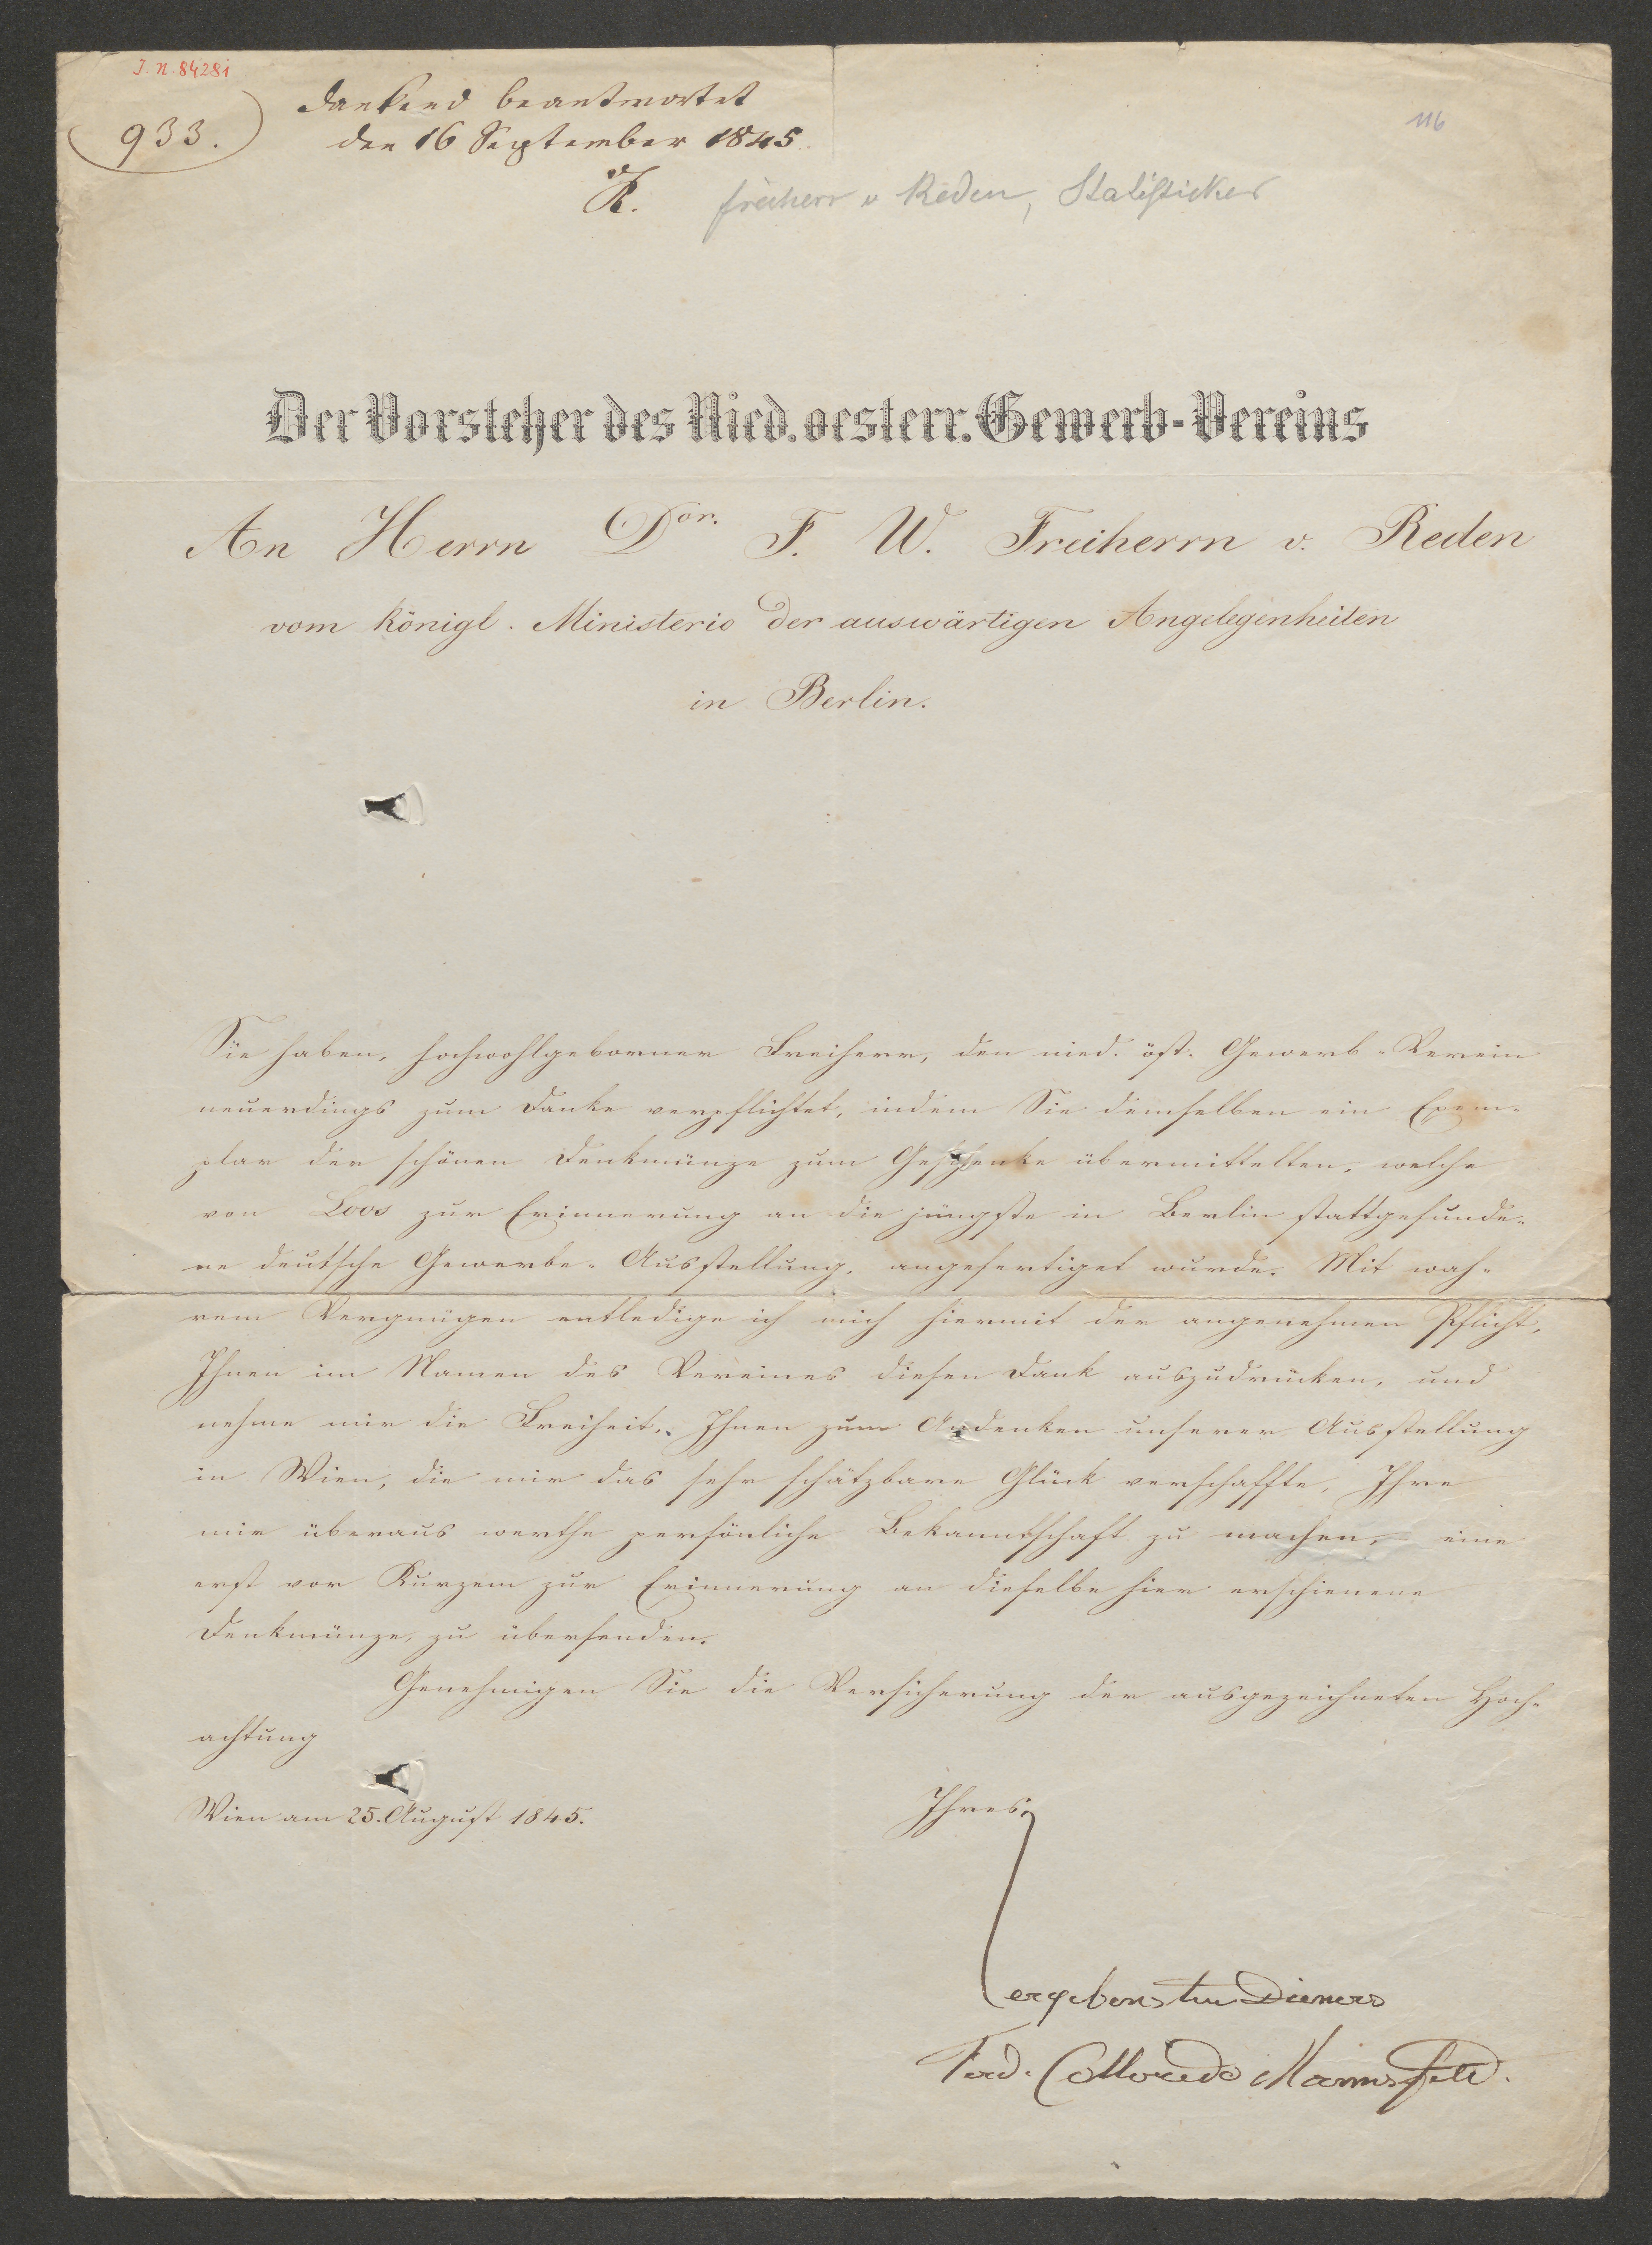 J. N. 84281
933.
dankend beantwortet
den 16 September 1845.
R.
freiherr v Reden, Statistiker
116
Der Vorsteher des Nied. oesterr. Gewerb-Vereins
An Herrn Dor. F. W. Freiherrn v. Reden
vom königl. Ministerio der auswärtigen Angelegenheiten
in Berlin.
Sie haben, hochwohlgeborner Freiherr, den nied. öst. Gewerb-Verein
neuerdings zum Danke verpflichtet, indem Sie demselben ein Exem-
plar der schönen Denkmünze zum Geschenke übermittelten, welche
von Loos zur Erinnerung an die jüngste in Berlin stattgefunde-
ne deutsche Gewerbe-Ausstellung, angefertiget wurde. Mit wah-
rem Vergnügen entledige ich mich hiermit der angenehmen Pflicht,
Ihnen im Namen des Vereines diesen Dank auszudrücken, und
nehme mir die Freiheit, Ihnen zum Andenken unserer Ausstellung
in Wien, die mir das sehr schätzbare Glück verschaffte, Ihre
mir überaus werthe persönliche Bekanntschaft zu machen, eine
erst vor Kurzem zur Erinnerung an dieselbe hier erschienene
Denkmünze, zu übersenden.
Genehmigen Sie die Versicherung der ausgezeichneten Hoch-
achtung
Wien am 25. August 1845.
Ihres
ergebensten Dieners
Ferd. Colloredo Mannsfeld.